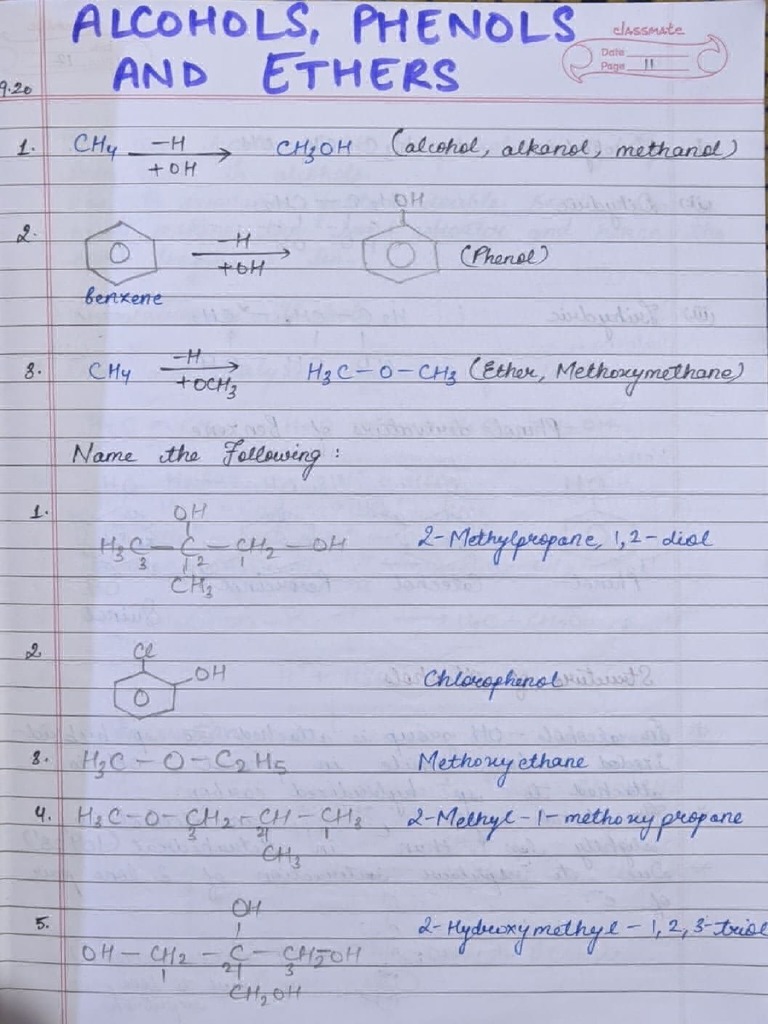 ALCOHOLS, PHENOLS
AND ETHERS
classmate
Date
Page 11
9.20
1. CH4 —H +OH → CH3OH (alcohol, alkanol, methanol)
2. —H +OH → OH (Phenol)
Benzene
3. CH4 —H +OCH3 → H3C – O – CH3 (Ether, Methoxymethane)
Name the Following :
1. OH
H3C – C – CH2 – OH 2-Methylpropane, 1,2-diol
3 2 1
CH3
2 Cl
OH Chlorophenol
3. H3C – O – C2H5 Methoxyethane
4. H3C – O – CH2 – CH – CH3 2-Methyl-1-methoxypropane
3 2 1
CH3
5. OH 2-Hydroxymethyl-1,2,3-triol
OH – CH2 – C – CH2–OH
1 2 3
CH2OH